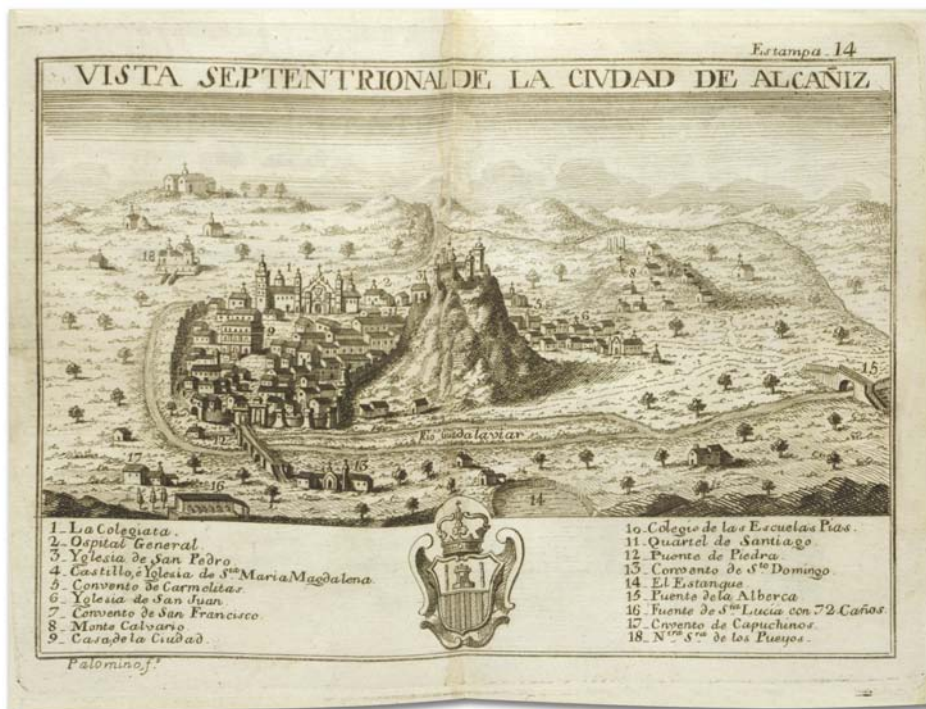 Estampa. 14
VISTA SEPTENTRIONAL DE LA CIVDAD DE ALCAÑIZ
18
1
2
11
3
8
6
9
15
Rio Guadalaviar
12
13
17
16
14
1_ La Colegiata.
2_ Ospital General.
3_ Yglesia de San Pedro.
4_ Castillo, é Yglesia de Sta Maria Magdalena
5_ Convento de Carmelitas.
6_ Yglesia de San Juan.
7_ Convento de San Francisco.
8_ Monte Calvario.
9_ Casa de la Ciudad.
10_ Colegio de las Escuelas Pias.
11_ Quartel de Santiago.
12_ Puente de Piedra.
13_ Convento de Sto Domingo
14_ El Estanque
15_ Puente de la Alberca
16_ Fuente de Sta Lucia con 72 Caños.
17_ Cnvento de Capuchinos
18_ Ntra Sra de los Pueyos.
Palomino, f.t